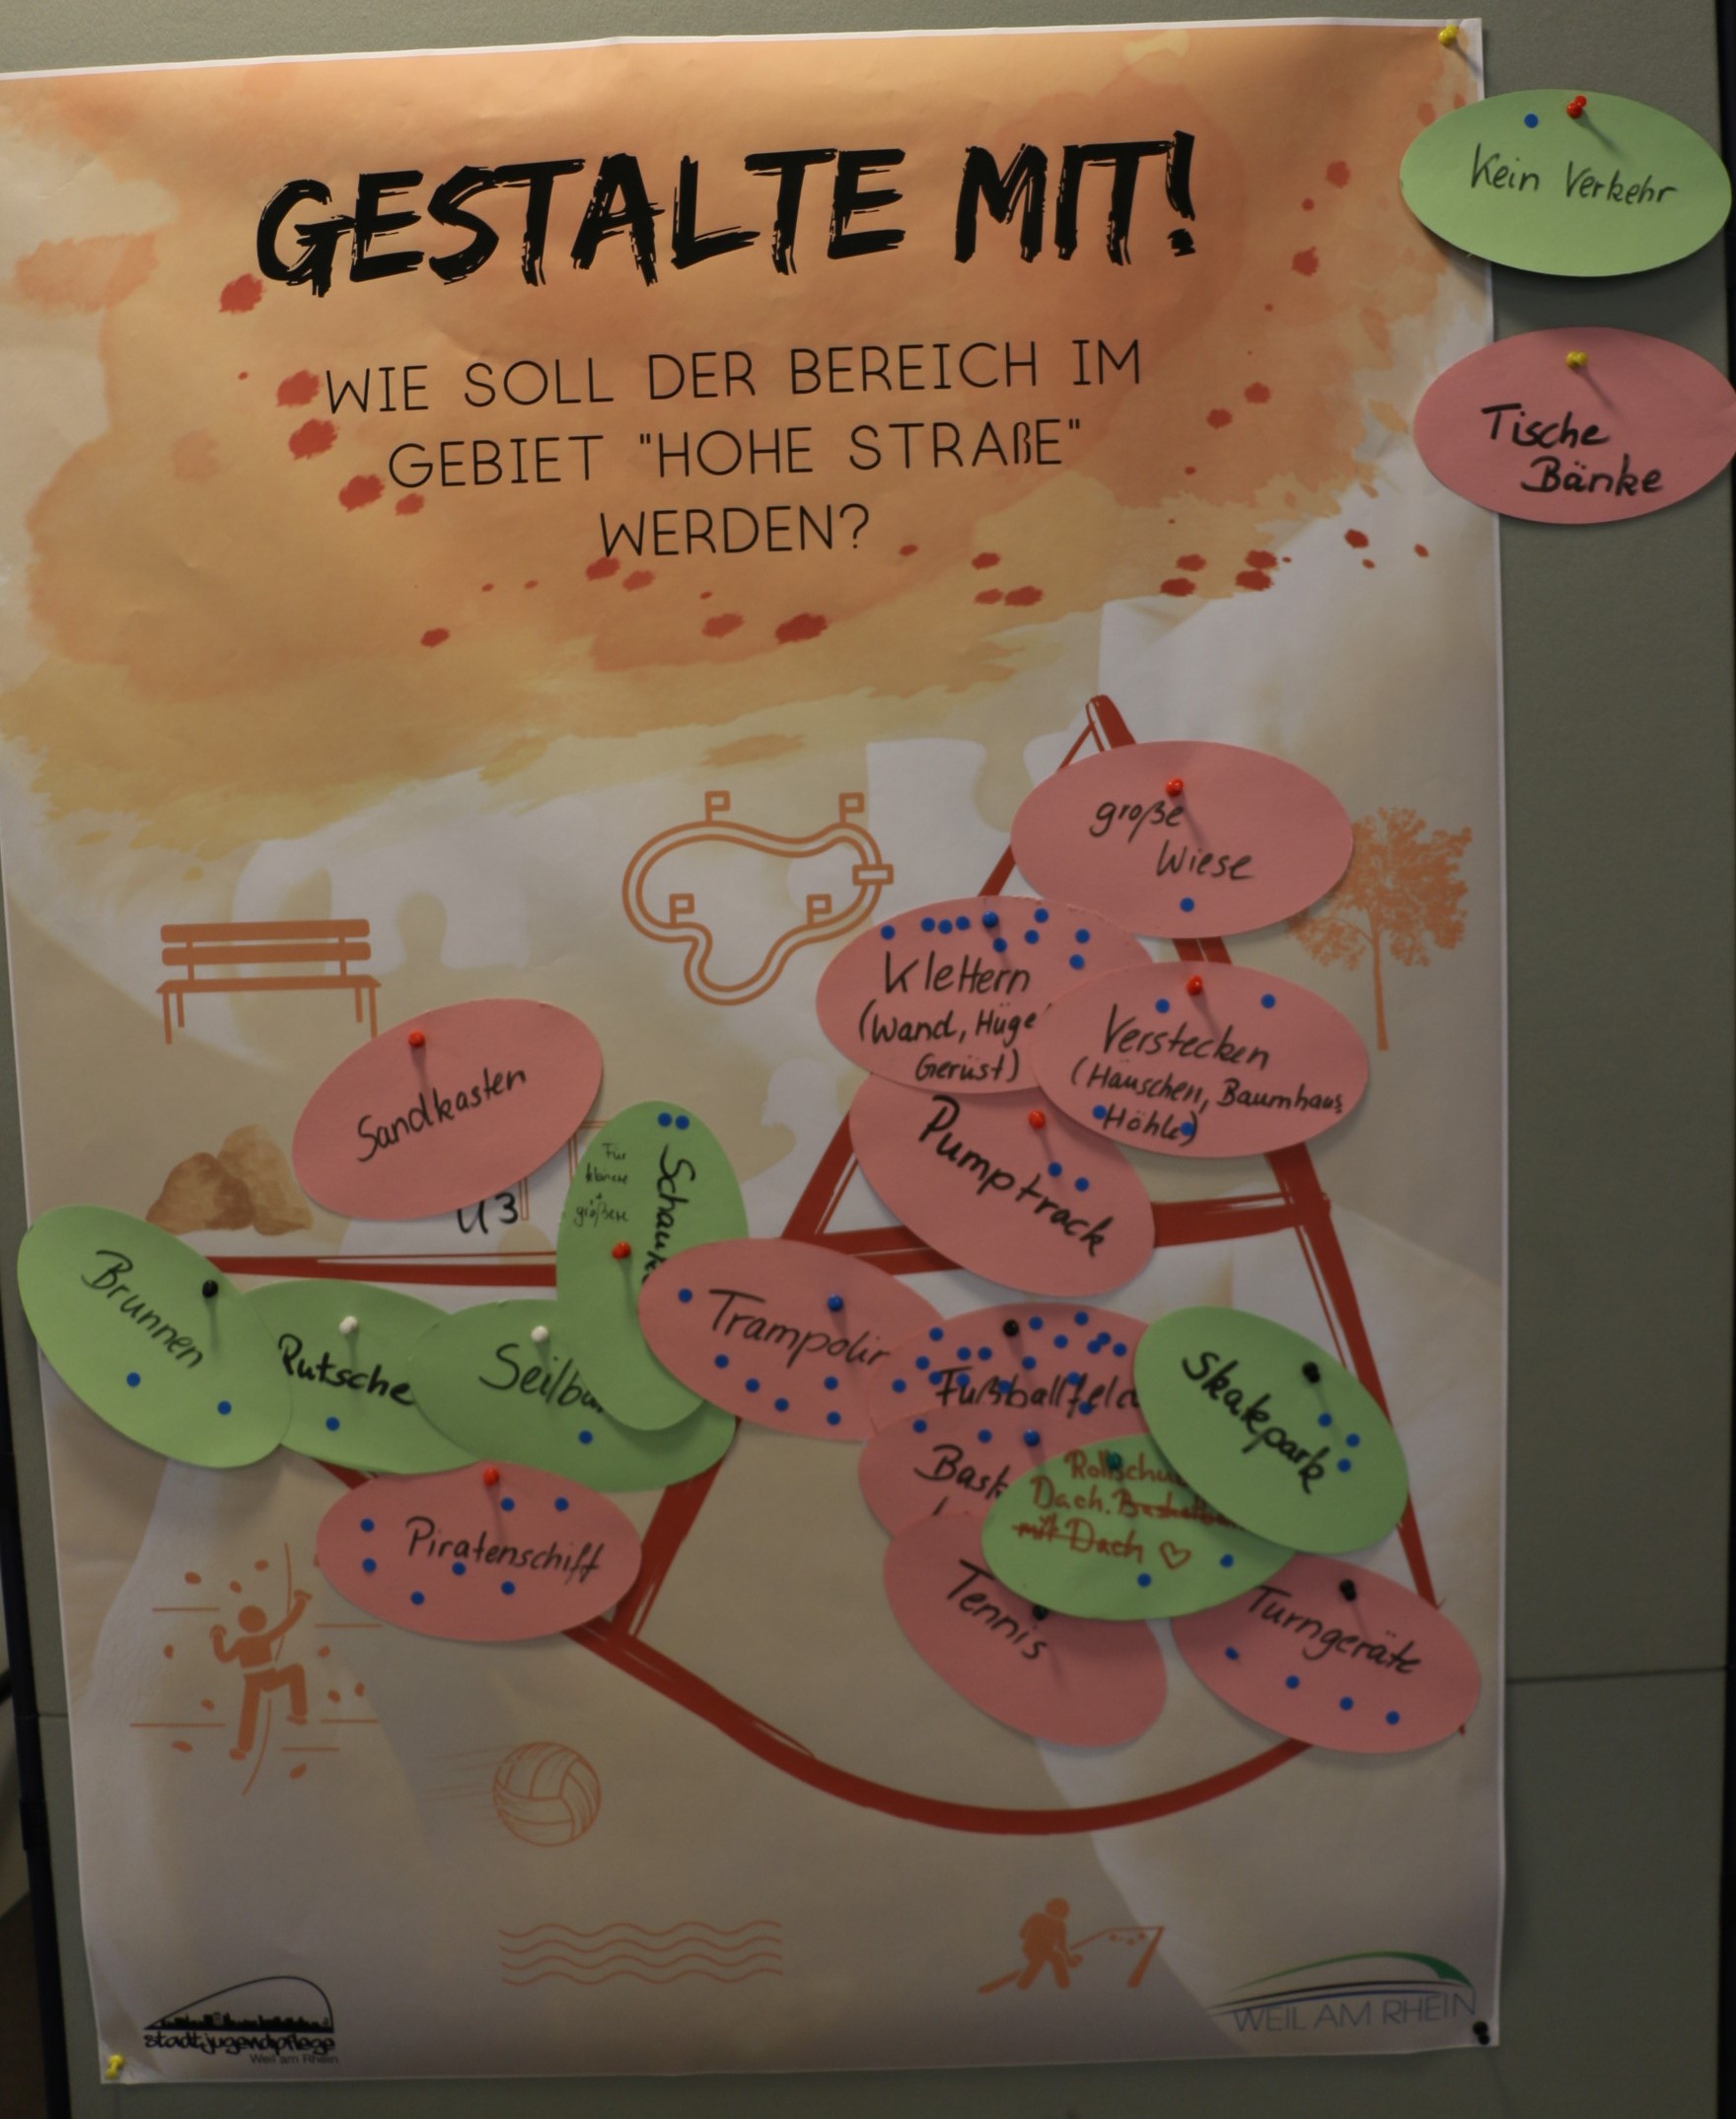 GESTALTE MIT!
WIE SOLL DER BEREICH IM
GEBIET "HOHE STRAßE"
WERDEN?
Kein Verkehr
Tische
Bänke
große
Wiese
Klettern
(Wand, Hüge
Gerüst)
Verstecken
(Häuschen, Baumhaus,
Höhle)
Pumptrack
Sandkasten
Ü3
Für
kleinere
+
größere
Schauk
Brunnen
Rutsche
Seilb
Trampolin
Fußballfeld
Skatepark
Bask
Rollschu
Dach. Basketba
mit Dach ♡
Piratenschiff
Tennis
Turngeräte
stadtjugendpflege
Weil am Rhein
WEIL AM RHEIN